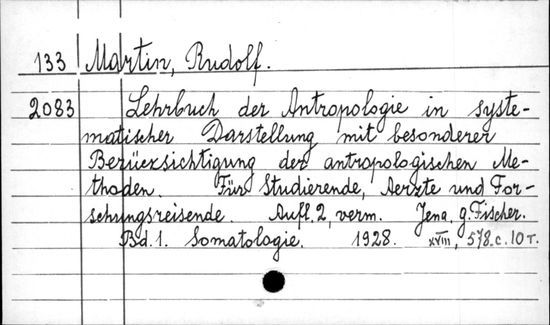 133 Martin, Rudolf.
2083 Lehrbuch der Antropologie in syste-
matischer Darstellung mit besonderer
Berücksichtigung der antropologischen Me-
thoden. Für Studierende, Aerzte und For-
schungsreisende. Aufl. 2, verm. Jena, g. Fischer.
Bd. 1. Somatologie. 1928. XVIII, 578. c. 10 т.